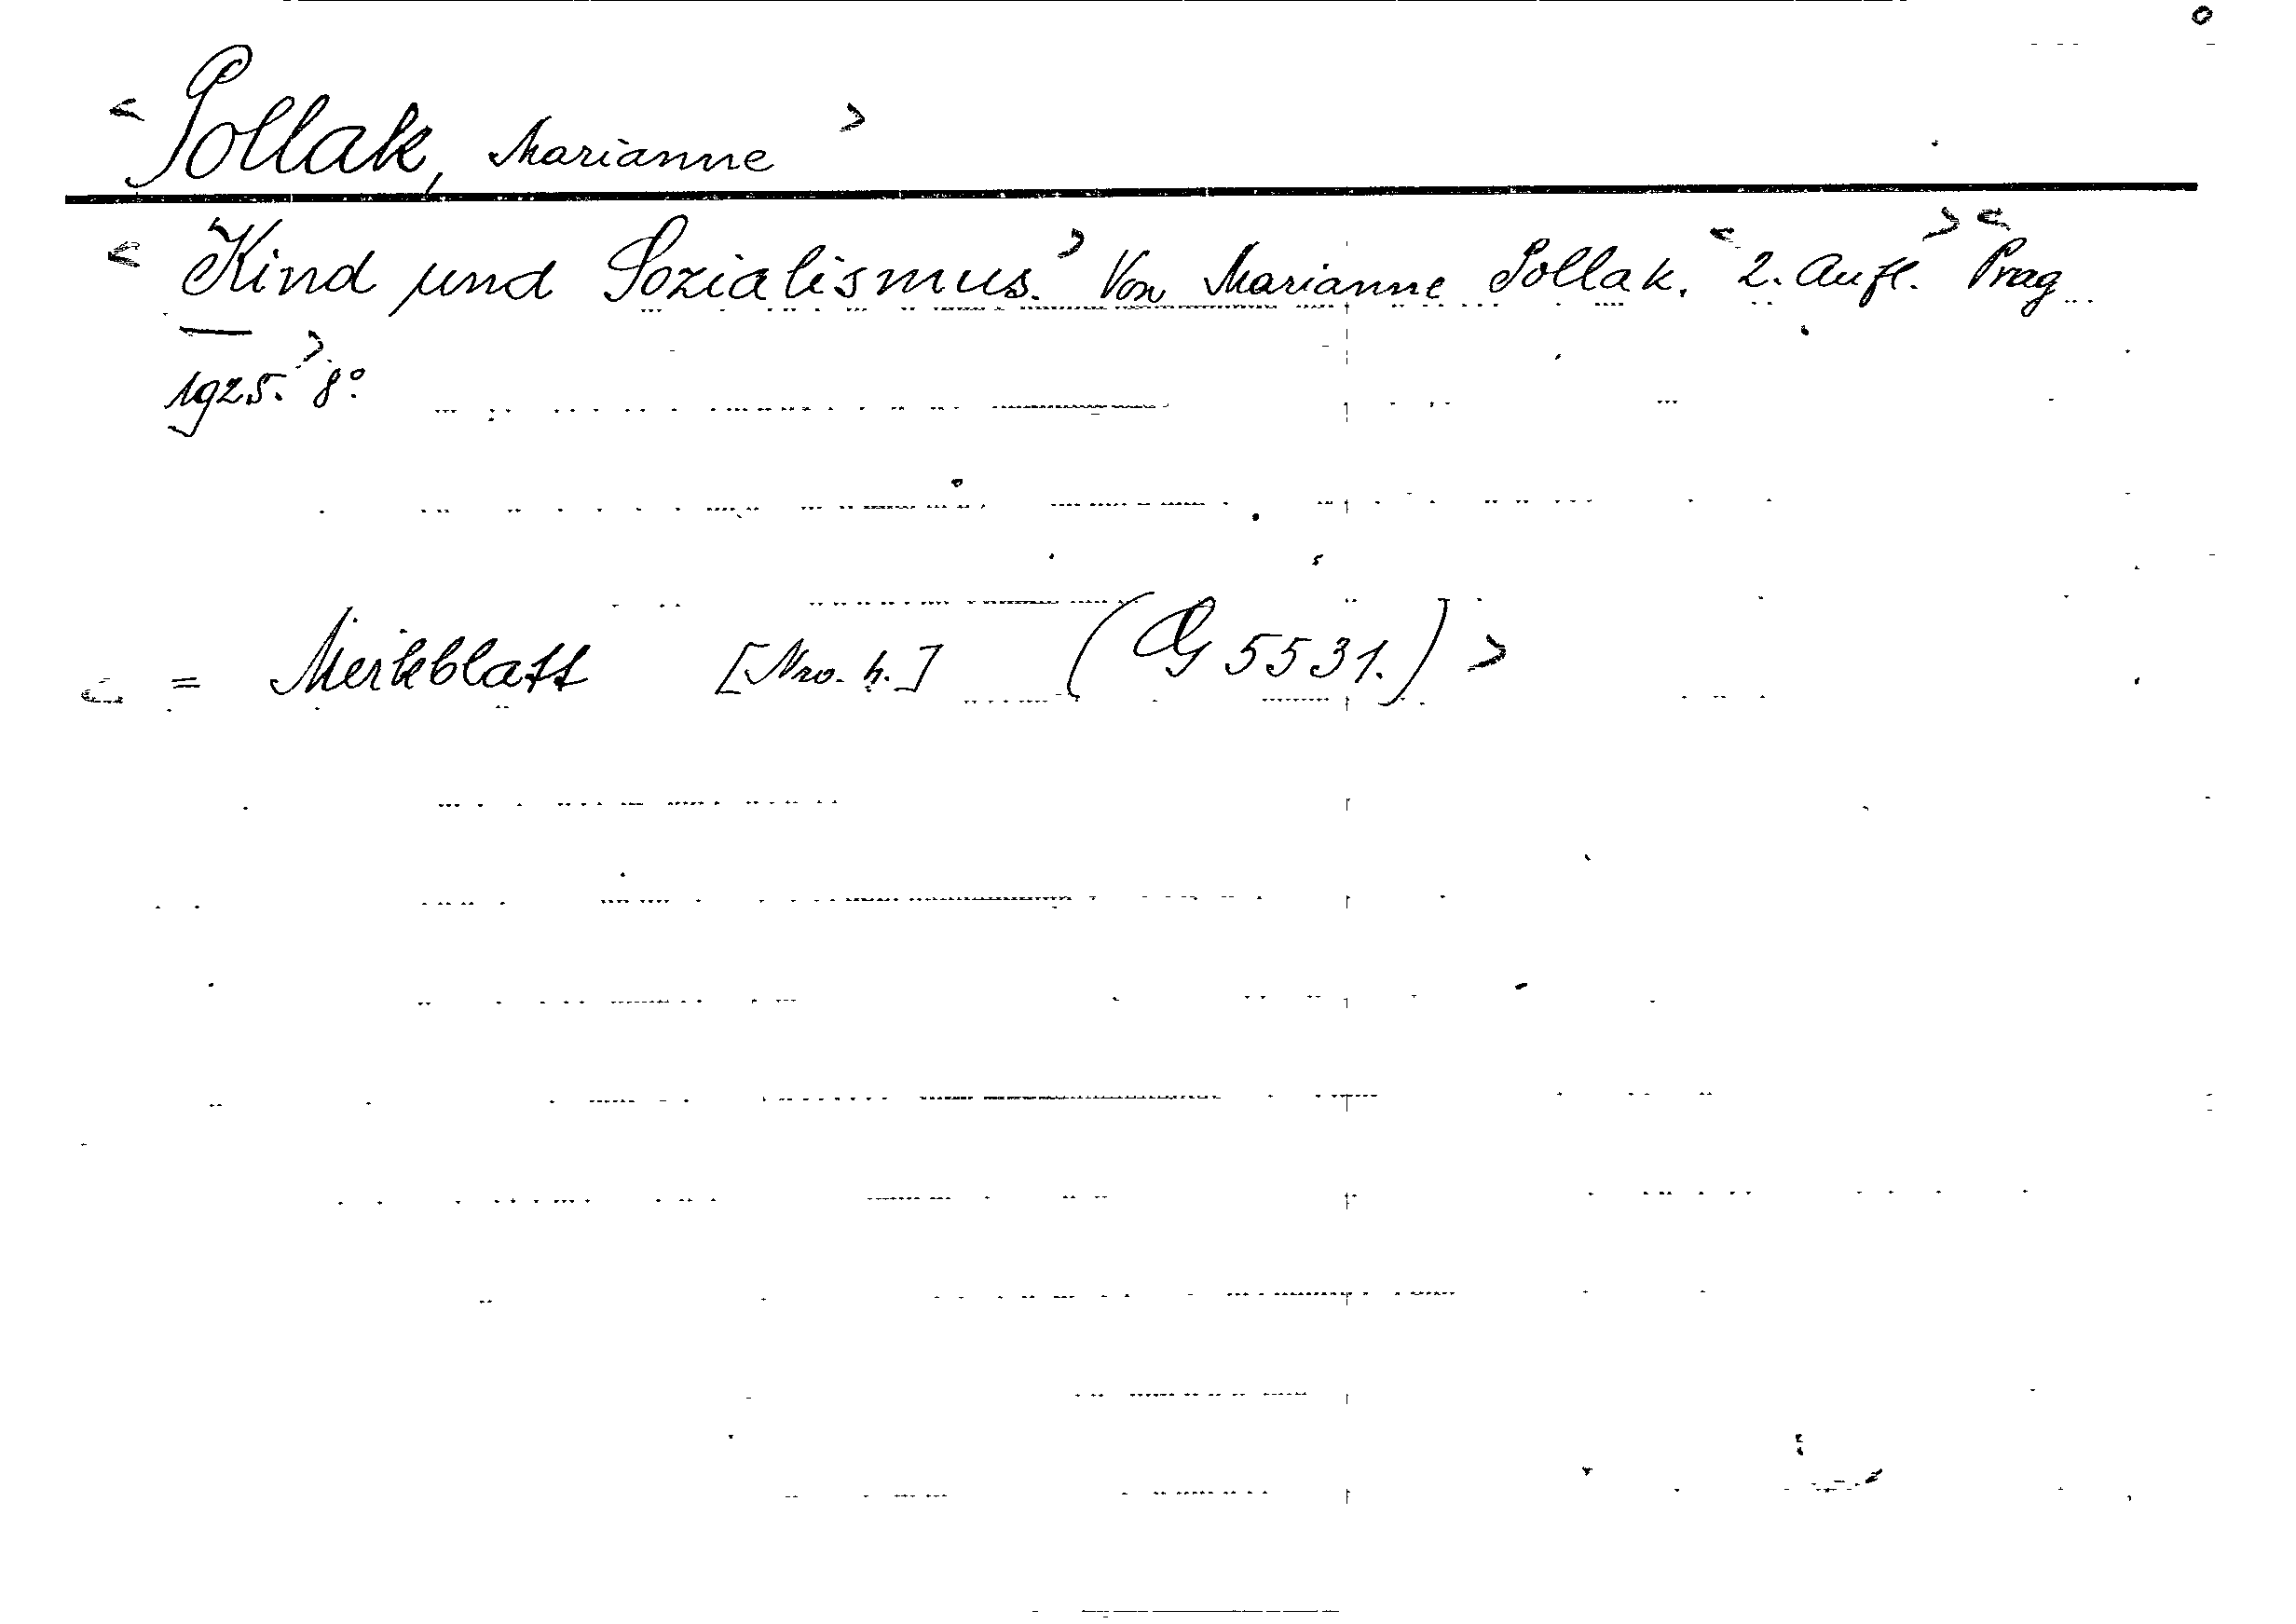 < Pollak, Marianne >
< Kind und Sozialismus. > Von Marianne Pollak. < 2. Aufl. > < Prag
1925. > 8°.
< = Merkblatt [Nro. 4.] (G 5531.) >